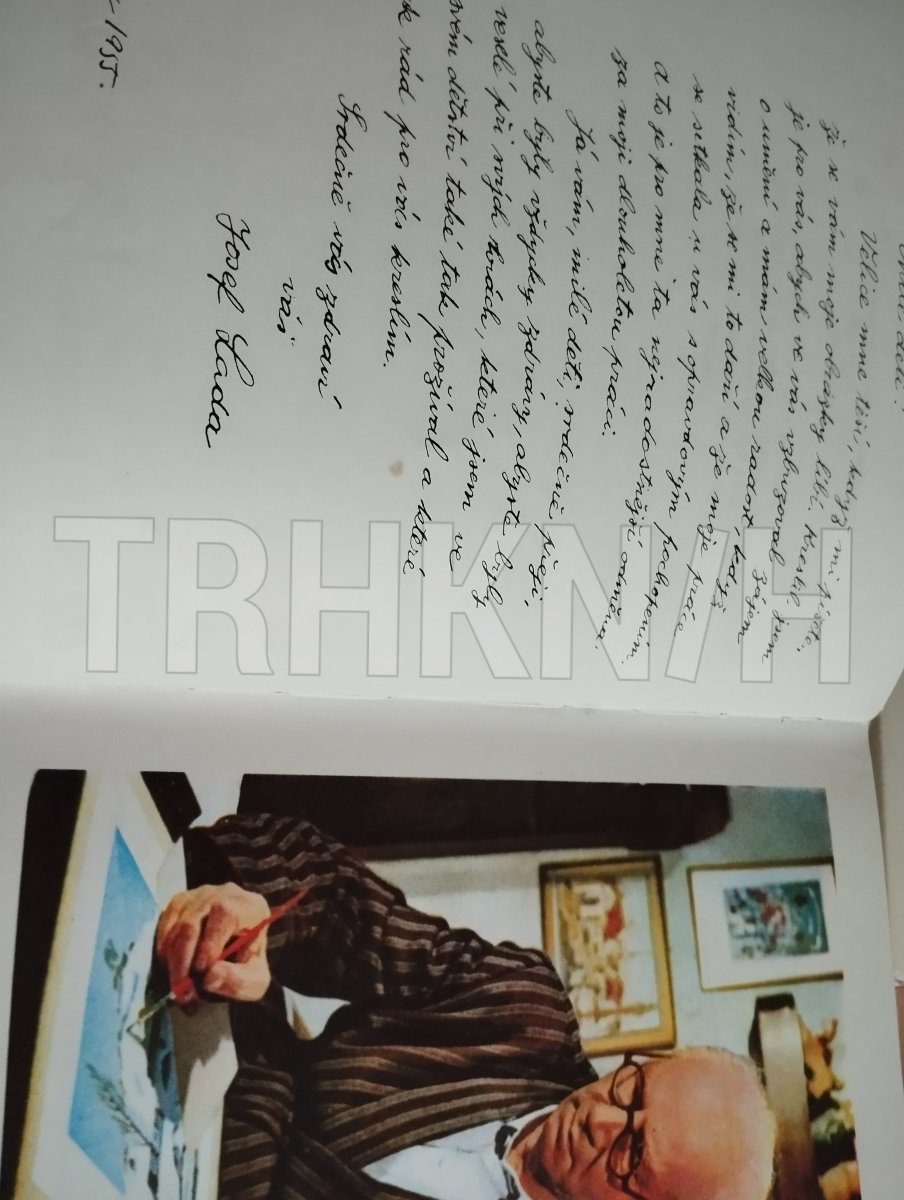 Milé děti!
Velice mne těší, když mi píšete,
že se vám moje obrázky líbí. Kreslil jsem
je pro vás, abych ve vás vzbuzoval zájem
o umění a mám velkou radost, když
vidím, že se mi to daří a že moje práce
se setkala u vás s opravdovým pochopením.
A to je pro mne ta nejradostnější odměna
za moji dlouholetou práci.
Já vám, milé děti, srdečně přeji,
abyste byly vždycky zdrávy, abyste byly
veselé při svých hrách, které jsem ve
svém dětství také tak prožíval a které
rád pro vás kreslím.
Srdečně vás zdraví
váš
Josef Lada
1955.
TRHKNIH